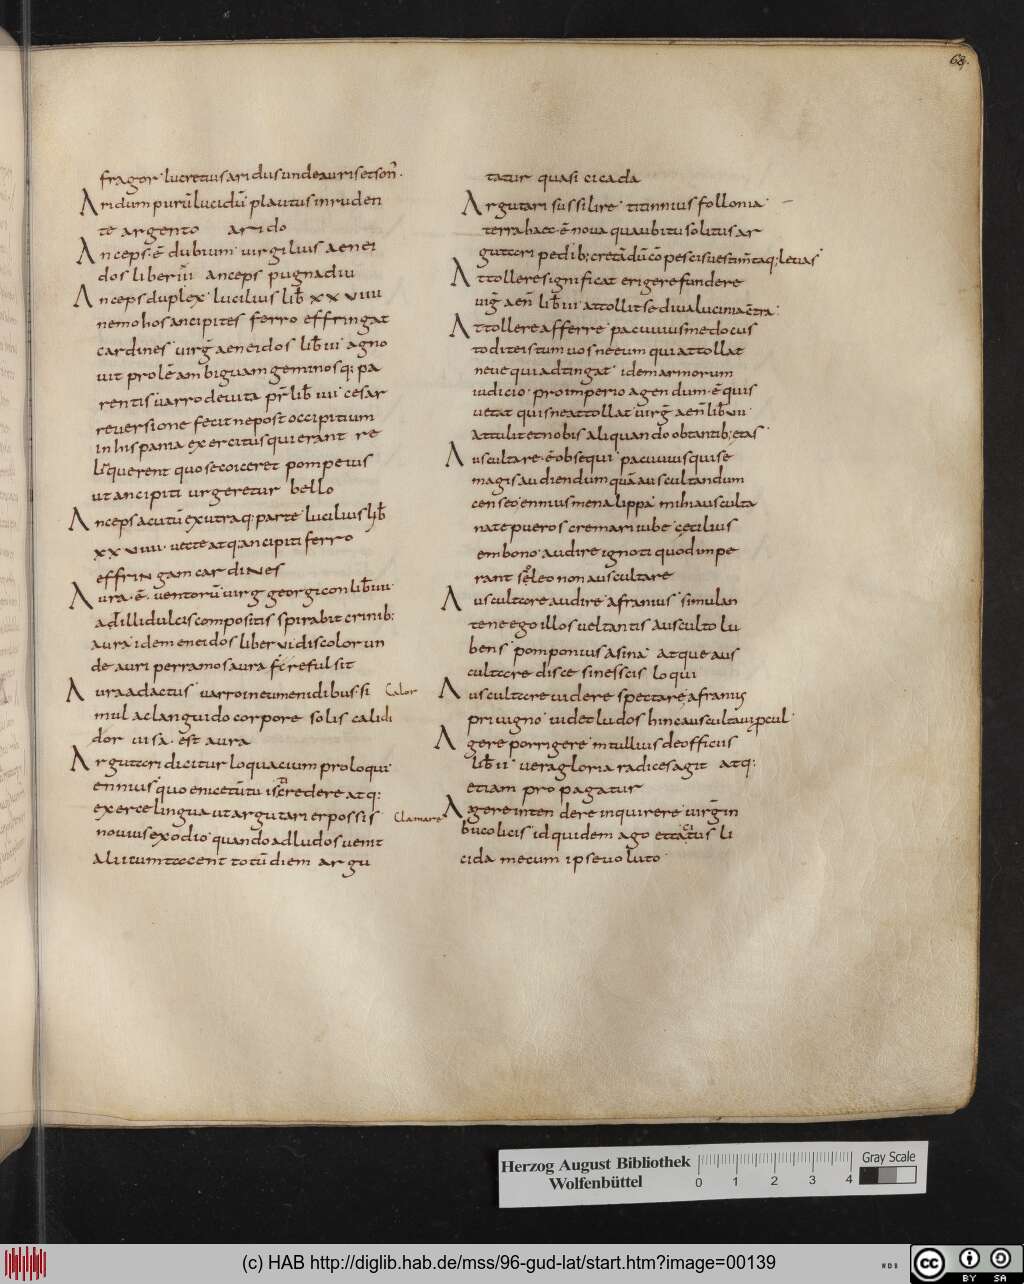 68.
fragor· lucretius aridus unde auris et son̄·
Aridum purū lucidū· plautus in ruden
te argento arido
Anceps· ē dubium· uirgilius aenei
dos liber uii anceps pugna diu
Anceps duplex· lucilius lib̄ xxuiiii
nemo hos ancipites ferro effringat
cardines· uirḡ aeneidos lib̄ iii agno
uit prolē ambiguam geminosq; pa
rentis uarro de uita pr̄ lib̄ iiii cesar
reuersione fecit ne post occipitium
in hispania exercitus qui erant re
lisquerent quo se coiceret pompeius
ut ancipiti urgeretur bello
Anceps acutū ex utraq; parte· lucilius lib̄
xxuiiii· uecte atq; ancipiti ferro
effringam cardines
Aura· ē· uentorū uirg georgicon lib̄ iiii·
ad illi dulcis compositis spirabit crinib;
aura· idem eneidos liber ui discolor un
de auri per ramos aura refulsit
Aura adactus· uarro in eumenidibus si
Calor
mul ac languido corpore solis calidi
dor uisa· est aura
Argutari dicitur loquacium proloqui·
ennius quo credere atq;
exerce lingua ut argutari possis
Clamare
nouius exodio· quando ad ludos uenit
alii cum tacent totū diem argu
tatur quasi cicada
Argutari sussilire· titinnius follonia·
terra haec· ē non aqua ubi tu solitus ar
gutari pedib; cretā dū cōpescis uestim̄taq; leuas
Attollere significat erigere fundere
uirḡ aen̄ lib̄ iii attollit se diua lucinia
Attollere afferre· pacuuius medo cus
toditeistum uos ne eum qui attollat
neue qui adtingat· idem armorum
iudicio· pro imperio agendum· ē quis
uetat quis ne attollat uirḡ aen̄ lib̄
attulit et nobis aliquando obtantib; etas
Auscultare· ē obsequi· pacuuius qui se
magis audiendum quā auscultandum
censeo· ennius menalippa mihi ausculta
nate pueros cremari iube· cecilius
embono· audire ignoti quod impe
rant soleo non auscultare
Auscultare audire· afranius· simulan
te ne ego illos uelitantis ausculto lu
bens· pomponius asina· atque aus
cultare disce si nescis loqui
Auscultare uidere spectare afranius
priuigno· uidet ludos hinc auscultaui pcul·
Agere porrigere· m tullius de officiis
lib̄ ii uera gloria radices agit atq;
etiam propagatur
Agere intendere inquirere· uirḡ in
bucolicis· id quidem ago et tacitus li
cida mecum ipse uoluto·
Herzog August Bibliothek
Wolfenbüttel
0 1 2 3 4
Gray Scale
(c) HAB http://diglib.hab.de/mss/96-gud-lat/start.htm?image=00139
WDB
cc BY SA